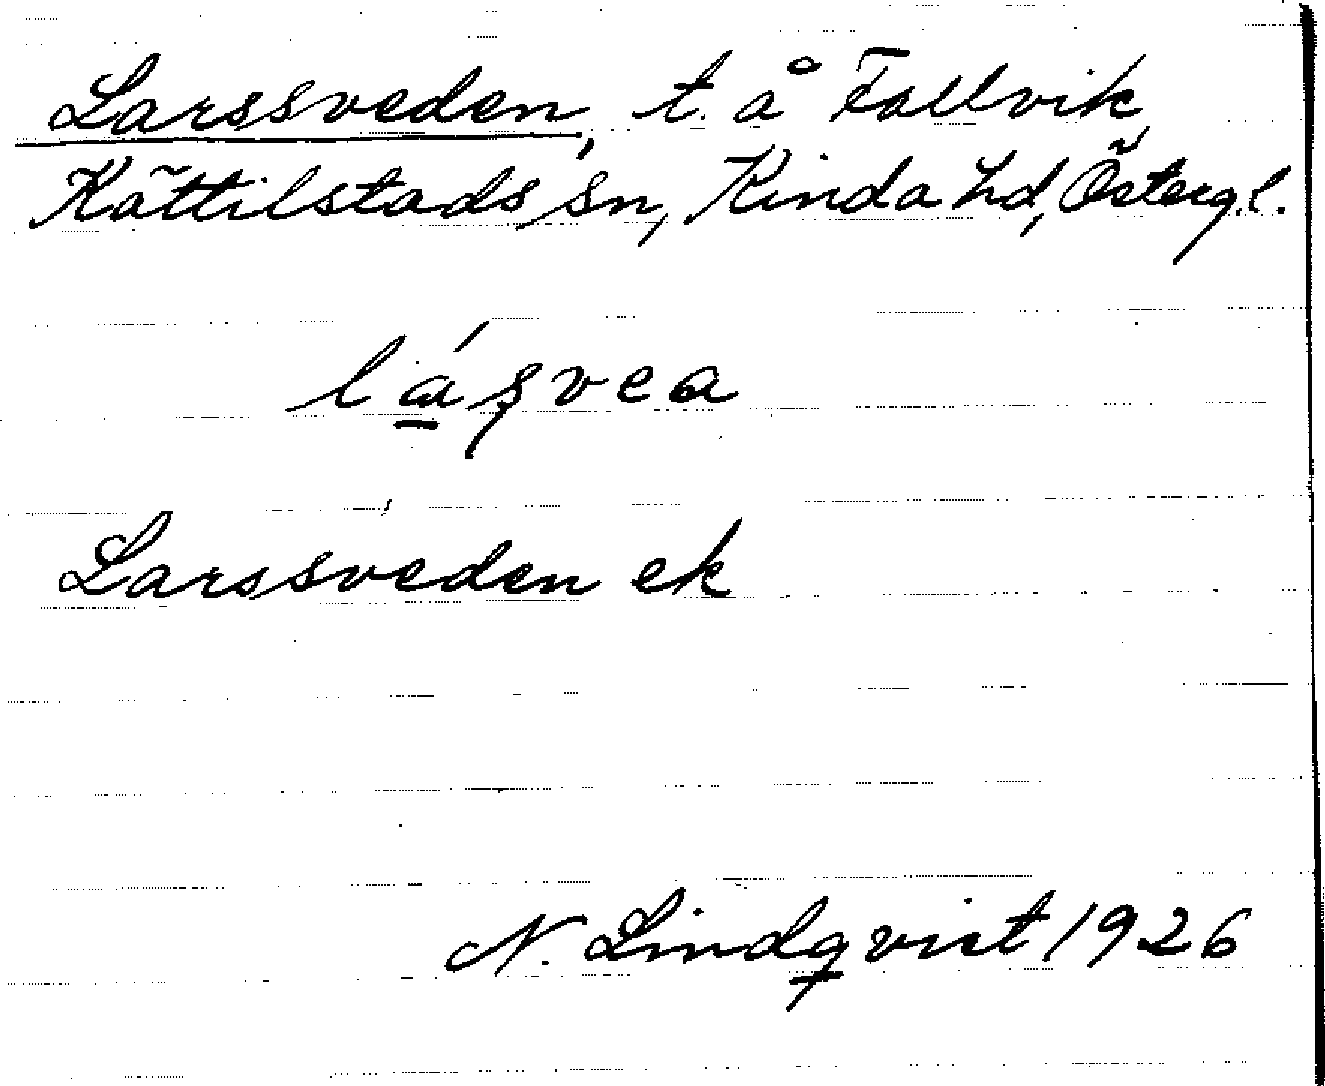 Larssveden, t. å Fallvik,
Kättilstads sn, Kinda hd, Östergl.
lásvea
Larssveden ek
N. Lindqvist 1926